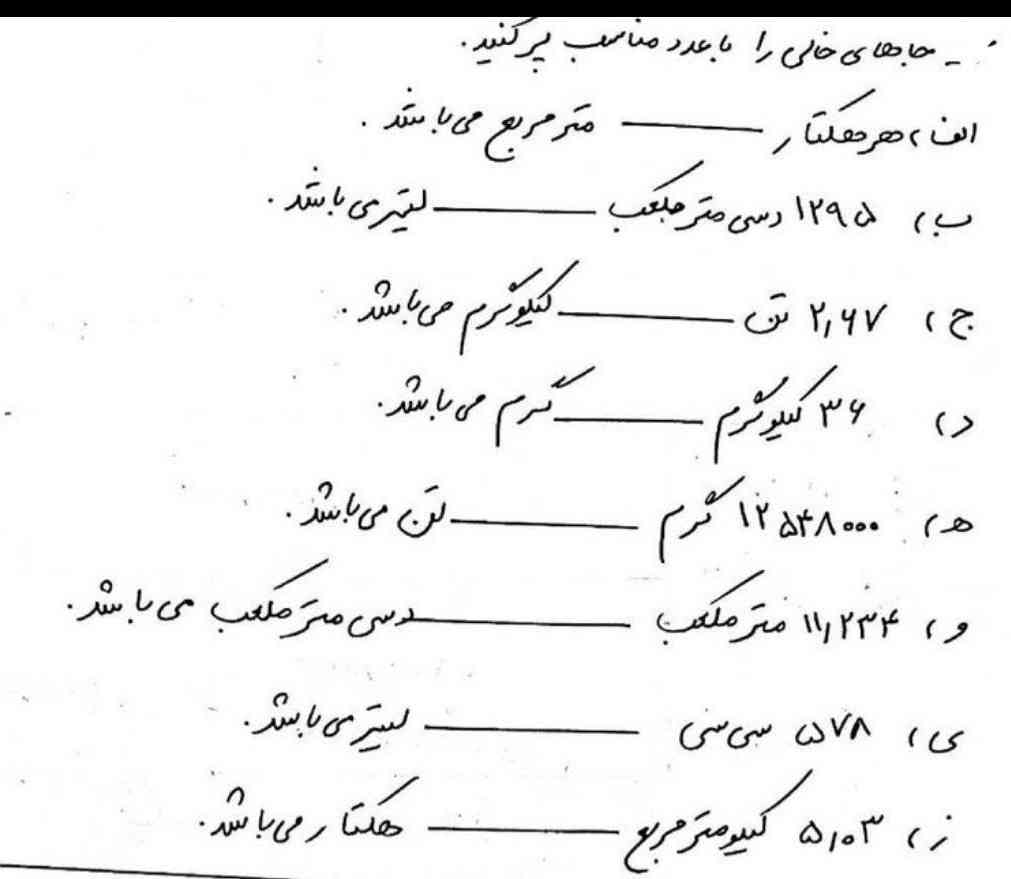 - جاهای خالی را با عدد مناسب پر کنید.
الف) هر هکتار ـــــــ متر مربع می باشد.
ب) ۱۲۹۵ دسی متر مکعب ـــــــ لیتر می باشد.
ج) ۲٫۶۷ تن ـــــــ کیلوگرم می باشد.
د) ۳۶ کیلوگرم ـــــــ گرم می باشد.
ه) ۱۲۵۴۸۰۰۰ گرم ـــــــ تن می باشد.
و) ۱۱٫۲۳۴ متر مکعب ـــــــ دسی متر مکعب می باشد.
ی) ۵۷۸ سی سی ـــــــ لیتر می باشد.
ز) ۵٫۰۳ کیلومتر مربع ـــــــ هکتار می باشد.